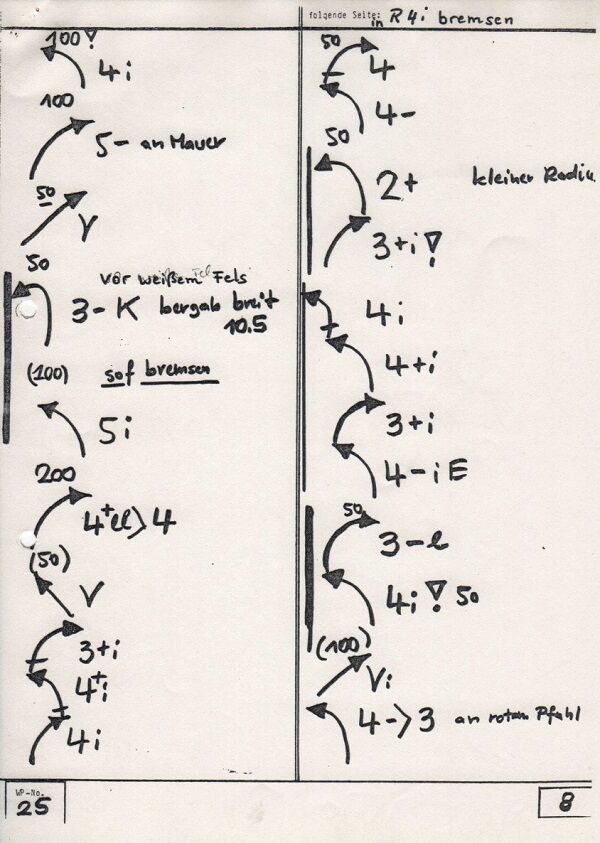 folgende Seite: in R 4i bremsen
100!
4i
100
5- an Mauer
50
V
50
vor weißem Fels
3-K bergab breit
10.5
(100) sof bremsen
5i
200
4+ll>4
(50)
V
3+i
4+i
4i
50
4
4-
50
2+ kleiner Radiu
3+i!
4i
4+i
3+i
4-iE
50
3-l
4i! 50
(100)
Vi
4->3 an rotem Pfahl
WP-No.
25
8